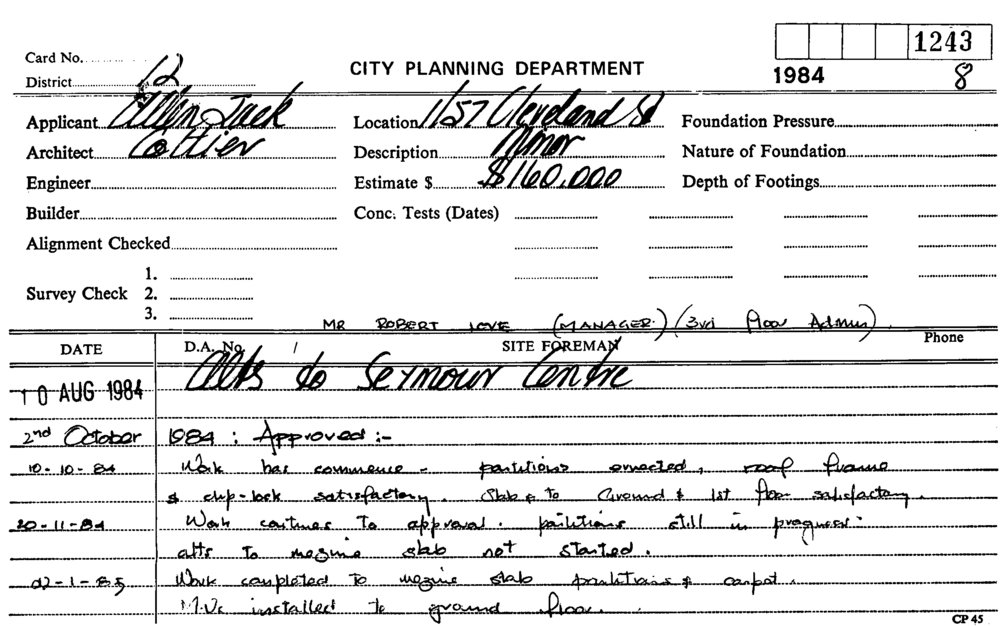 1243
Card No.
CITY PLANNING DEPARTMENT
1984 8
District 12
Applicant Allen Jack Location 1/57 Cleveland St Foundation Pressure
Architect Cottier Description Minor Nature of Foundation
Engineer Estimate $ $160,000 Depth of Footings
Builder Conc. Tests (Dates)
Alignment Checked
1.
Survey Check 2.
3.
MR ROBERT LOVE (MANAGER) (3rd floor Admin)
DATE D.A. No. / SITE FOREMAN Phone
10 AUG 1984 Alts to Seymour Centre
2nd October 1984 : Approved :-
10-10-84 Work has commence - partitions errected, roof frame
& clip-lock satisfactory. Slab to Ground & 1st floor satisfactory.
20-11-84 Work continues to approval. partitions still in progress.
alts to mezine slab not started.
02-1-85 Work completed to mezine slab partitions & carpet.
M.Vc installed to ground floor.
CP 45